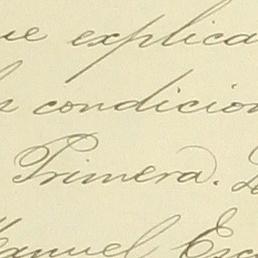 ue explica
condicion
Primera.
Manuel Esc